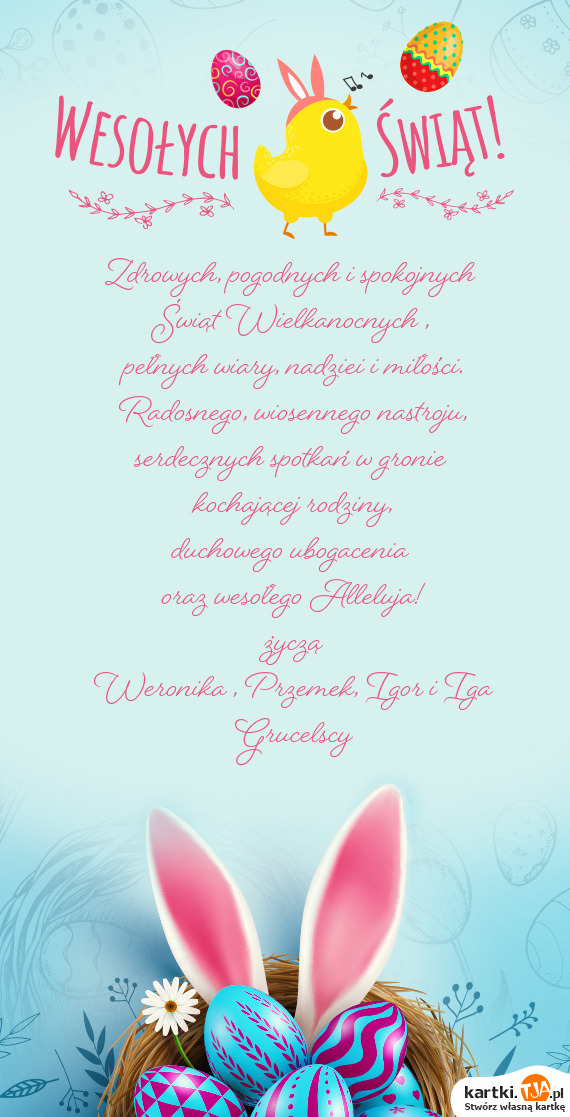 Wesołych Świąt!
Zdrowych, pogodnych i spokojnych
Świąt Wielkanocnych ,
pełnych wiary, nadziei i miłości.
Radosnego, wiosennego nastroju,
serdecznych spotkań w gronie
kochającej rodziny,
duchowego ubogacenia
oraz wesołego Alleluja!
życzą
Weronika , Przemek, Igor i Iga
Grucelscy
kartki.TJA.pl
Stwórz własną kartkę